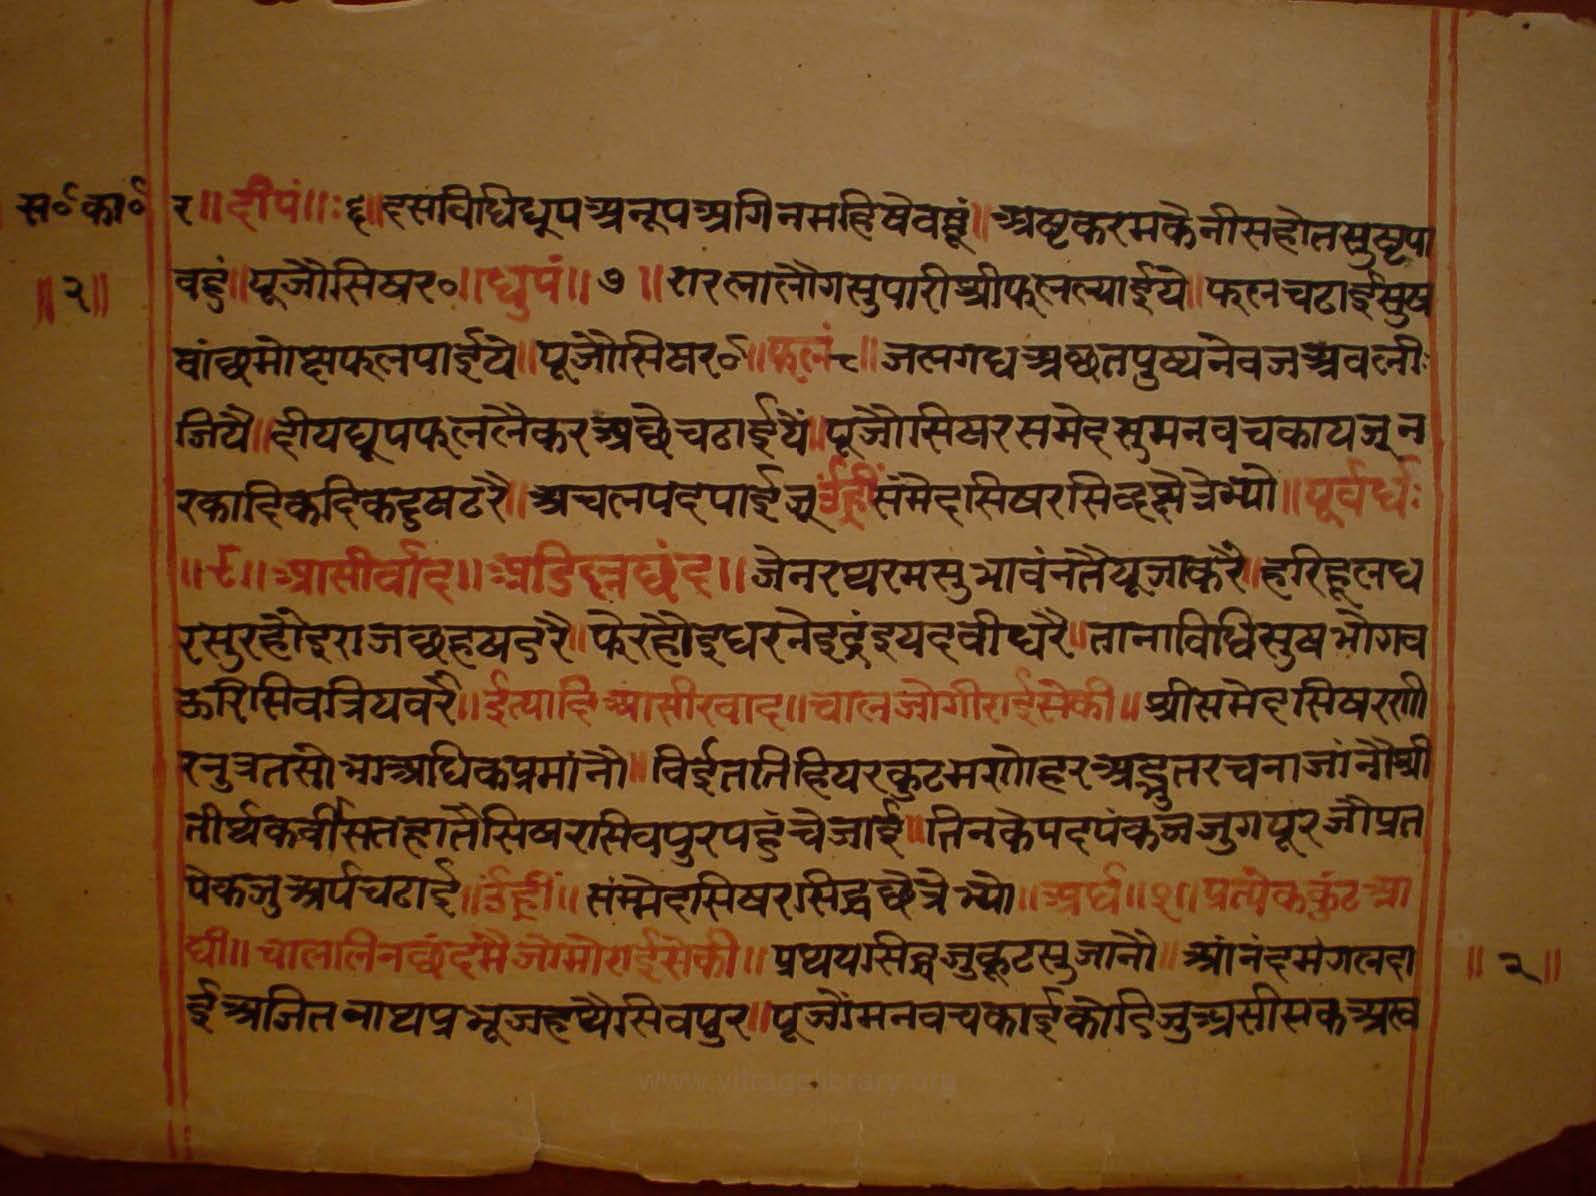 स॰ का॰ र॥ दीपं॥ः६॥ दसविधिधूपअनूपअगिनमहिषेवहूं॥ अष्टकरमकेनीसहोतसुष्टपा
॥२॥ वहुं॥ पूजौसिषर०॥ धुपं॥ ७॥ दारलालौगसुपारीश्रीफलल्याईये॥ फलचढाईसुष
वांछमोक्षफलपाईये॥ पूजौसिषर॰॥ फलं ८॥ जलगधअछतपुष्पनेवजअवलीः
जियै॥ दीयधूपफललैकरअछेचढाईयैं॥ पूजौसिषरसमेदसुमनवचकायजून
रकादिकदिकदुषटरै॥ अचलपदपाईजू ॐह्रीं संमेदसिषरसिद्धक्षेत्रेभ्यो॥ पूर्वर्घः
॥९॥ आसीर्वाद॥ अडिल्लछंद॥ जेनरपरमसुभावंनतैपूजाकरै॥ हरिहूलध
रसुरहोइराजछहषंडरै॥ फेरहोइधरनेइद्रंइयदवीधरै॥ नानाविधिसुषभोगव
ऊरिसिवत्रियवरै॥ ईत्यादि आसीरवाद॥ चालजोगीराईसेकी॥ श्रीसमेदसिषरगी
रनुव्रतसोभाअधिकप्रमांनौ॥ विईततिहियरकुटमणोहरअद्भुतरचनाजांनौश्री
तीर्थकर्वीसतहातैसिषरासिवपुरपहुंचेजाई॥ तिनकेपदपंकजजुगपूरजौप्रत
पेकजुअर्घचढाई॥ ॐह्रीं॥ संम्मेदसिषरसिद्धछेत्रेभ्यो॥ अर्घ॥१॥ प्रत्येककुंटआ
र्घी॥ चालानिनछंदमैजोगीराईसेकी॥ प्रथयसिद्धजुकूटसुजानौ॥ आंनंदमंगलदा ॥२॥
ईअजितनाथप्रभूजहथैसिवपुर॥ पूजौंमनवचकाईकोडिजुअसीसकअरव
www.vjtragelibrary.org